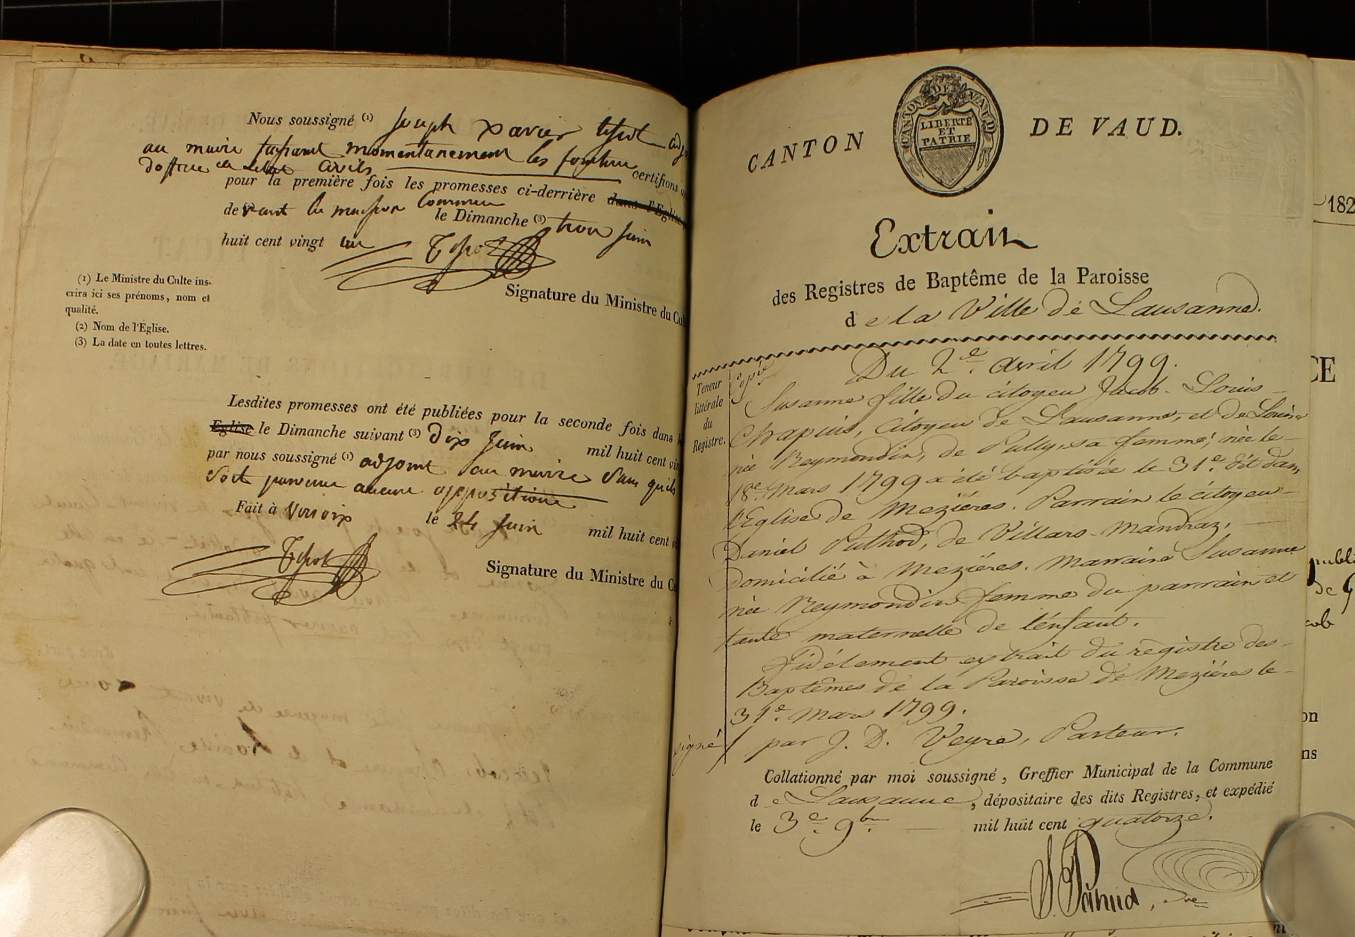 Nous soussigné (1) Joseph xavier tissot adj
au maire faisant momentanement les fonctions
d'officie de l'etat civils certifions
pour la première fois les promesses ci-derrière dans l'Eglise
devant la maison commune le Dimanche (3) trois juin
huit cent vingt un Tissot
Signature du Ministre du Cu
(1) Le Ministre du Culte ins-
crira ici ses prénoms, nom et
qualité.
(2) Nom de l'Église.
(3) La date en toutes lettres.
Lesdites promesses ont été publiées pour la seconde fois dans
Eglise le Dimanche suivant (3) dix juin mil huit cent vin
par nous soussigné (1) adjoint au maire sans qu'ils
soit parvenue aucune opposition
Fait à Versoix le 24 juin mil huit cent v
Tissot
Signature du Ministre du Cu
CANTON DE VAUD.
CANTON DE VAUD
LIBERTÉ
ET
PATRIE
Extrait
des Registres de Baptême de la Paroisse
de la Ville de Lausanne.
Teneur
littérale
du
Registre.
Du 2e. avril 1799.
Susanne fille du citoyen Jacob-Louis
Chapuis, Citoyen de Lausanne, et de Louise
née Reymondin, de Pully, sa femme; née le
18e. Mars 1799 a été baptisée le 31e. dit dans
l'Eglise de Mezières. Parrain le citoyen
Daniel Puthod, de Villars-Mandraz,
domicilié à Mezières. Marraine Susanne
née Reymondin femme du parrain et
tante maternelle de l'enfant.
fidélement extrait du registre des
Baptêmes de la Paroisse de Mezières le
31e. Mars 1799.
signé / par J. D. Veyre, Pasteur.
Collationné par moi soussigné, Greffier Municipal de la Commune
de Lausanne, dépositaire des dits Registres, et expédié
le 3e. 9bre. mil huit cent quatorze.
S. Pahud,
182
CE
publi
de G
cob
on
ns